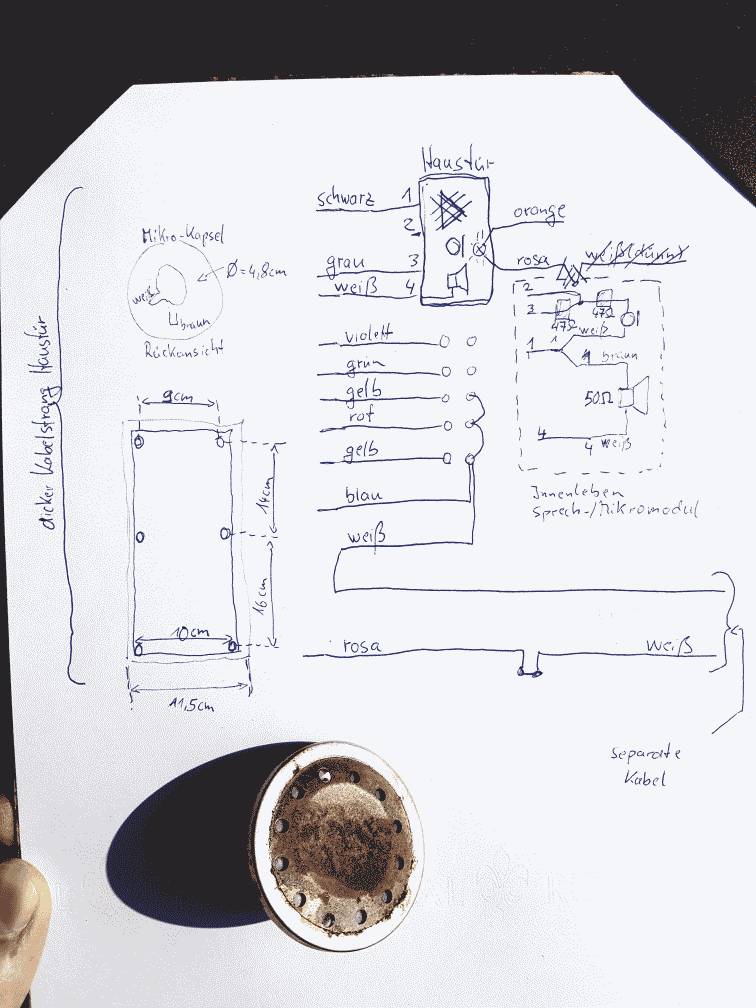 Haustür
schwarz 1
2
grau 3
weiß 4
orange
rosa weiß(dünn)
Mikro-Kapsel
Ø=4,8cm
weiß
braun
Rückansicht
dicker Kabelstrang Haustür
violett
grün
gelb
rot
gelb
blau
weiß
2
3
47Ω
47Ω
weiß
1 1
1 braun
50Ω
4
4 weiß
Innenleben
Sprech-/Mikromodul
9cm
14cm
16cm
10cm
11,5cm
rosa weiß
separate
Kabel